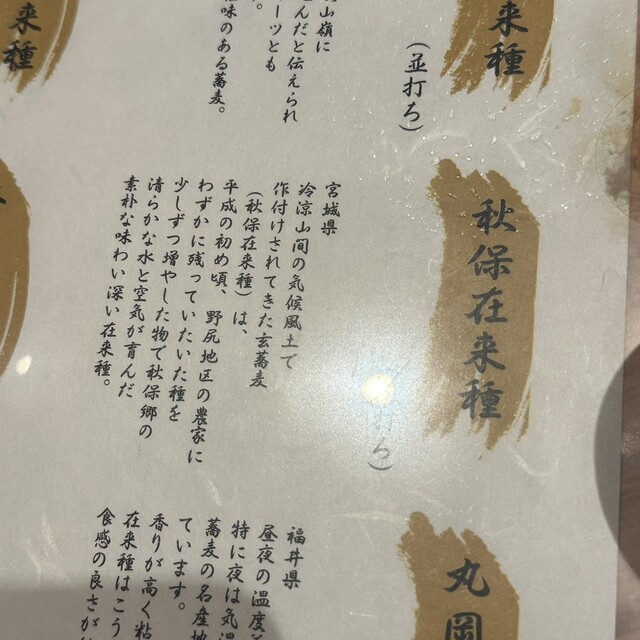 来種
(並打ち)
山嶺に
んだと伝えられ
ーツとも
味のある蕎麦。
来種
秋保在来種
打ち)
宮城県
冷涼山間の気候風土て
作付けされてきた玄蕎麦
(秋保在来種)は、
平成の初め頃、野尻地区の農家に
わずかに残っていたいた種を
少しずつ増やした物で秋保郷の
清らかな水と空気が育んだ
素朴な味わい深い在来種。
丸岡
福井県
昼夜の温度
特に夜は気温
蕎麦の名産地
ています。
香りが高く粘
在来種はこう
食感の良さが